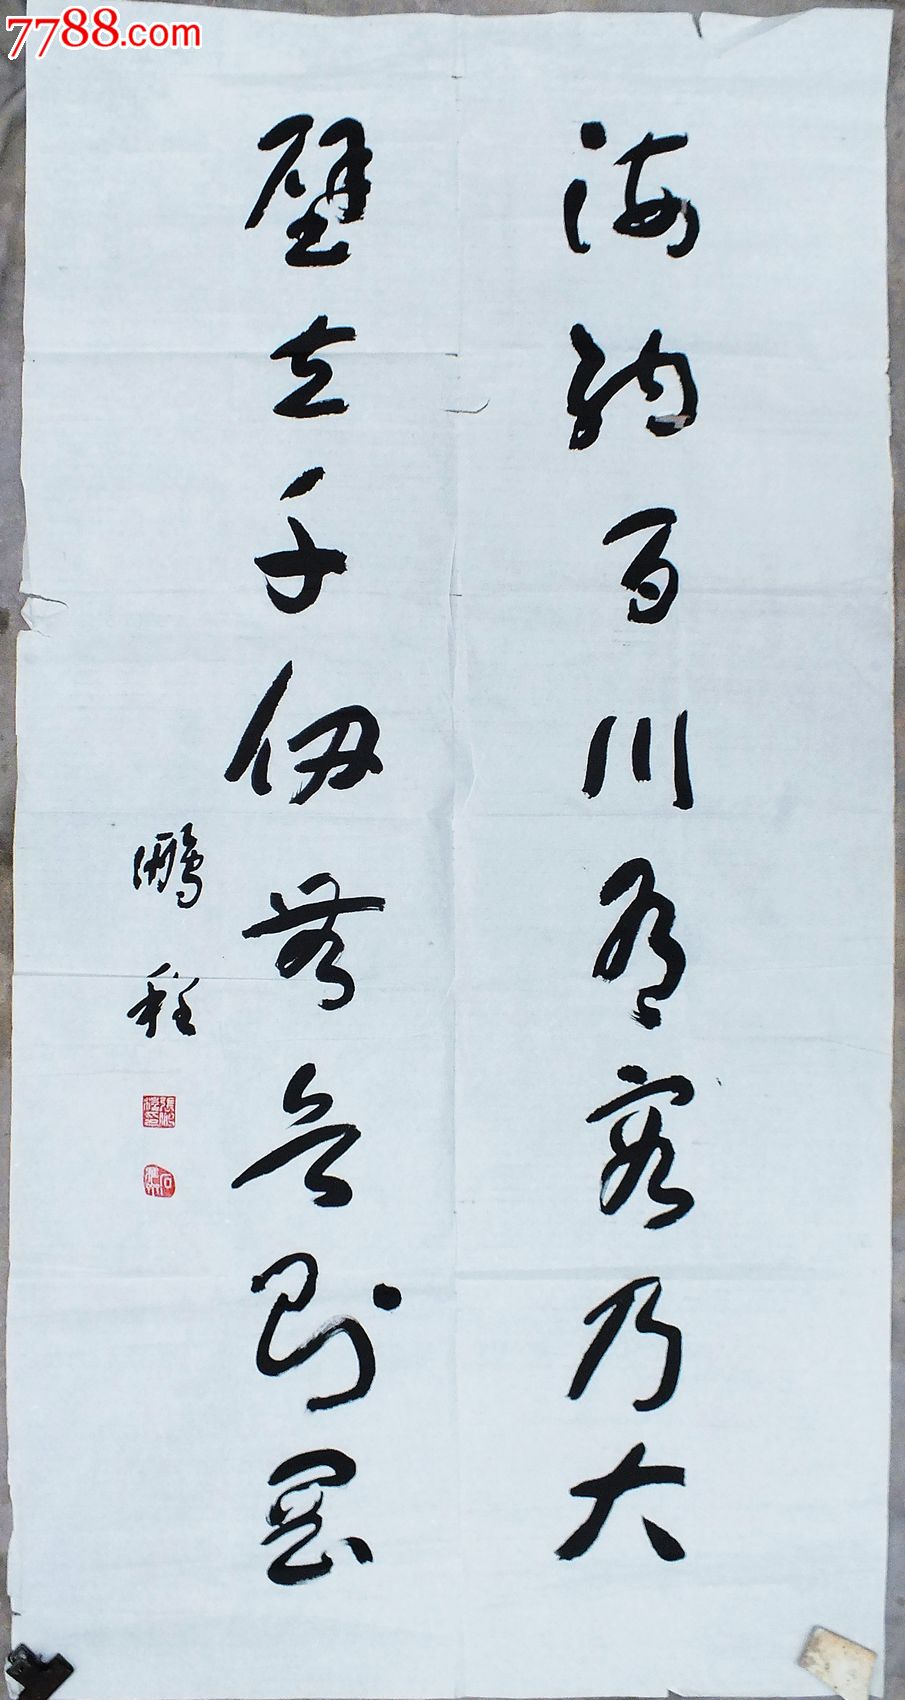 7788.com
海納百川有容乃大
壁立千仞無欲則罡
鵬程